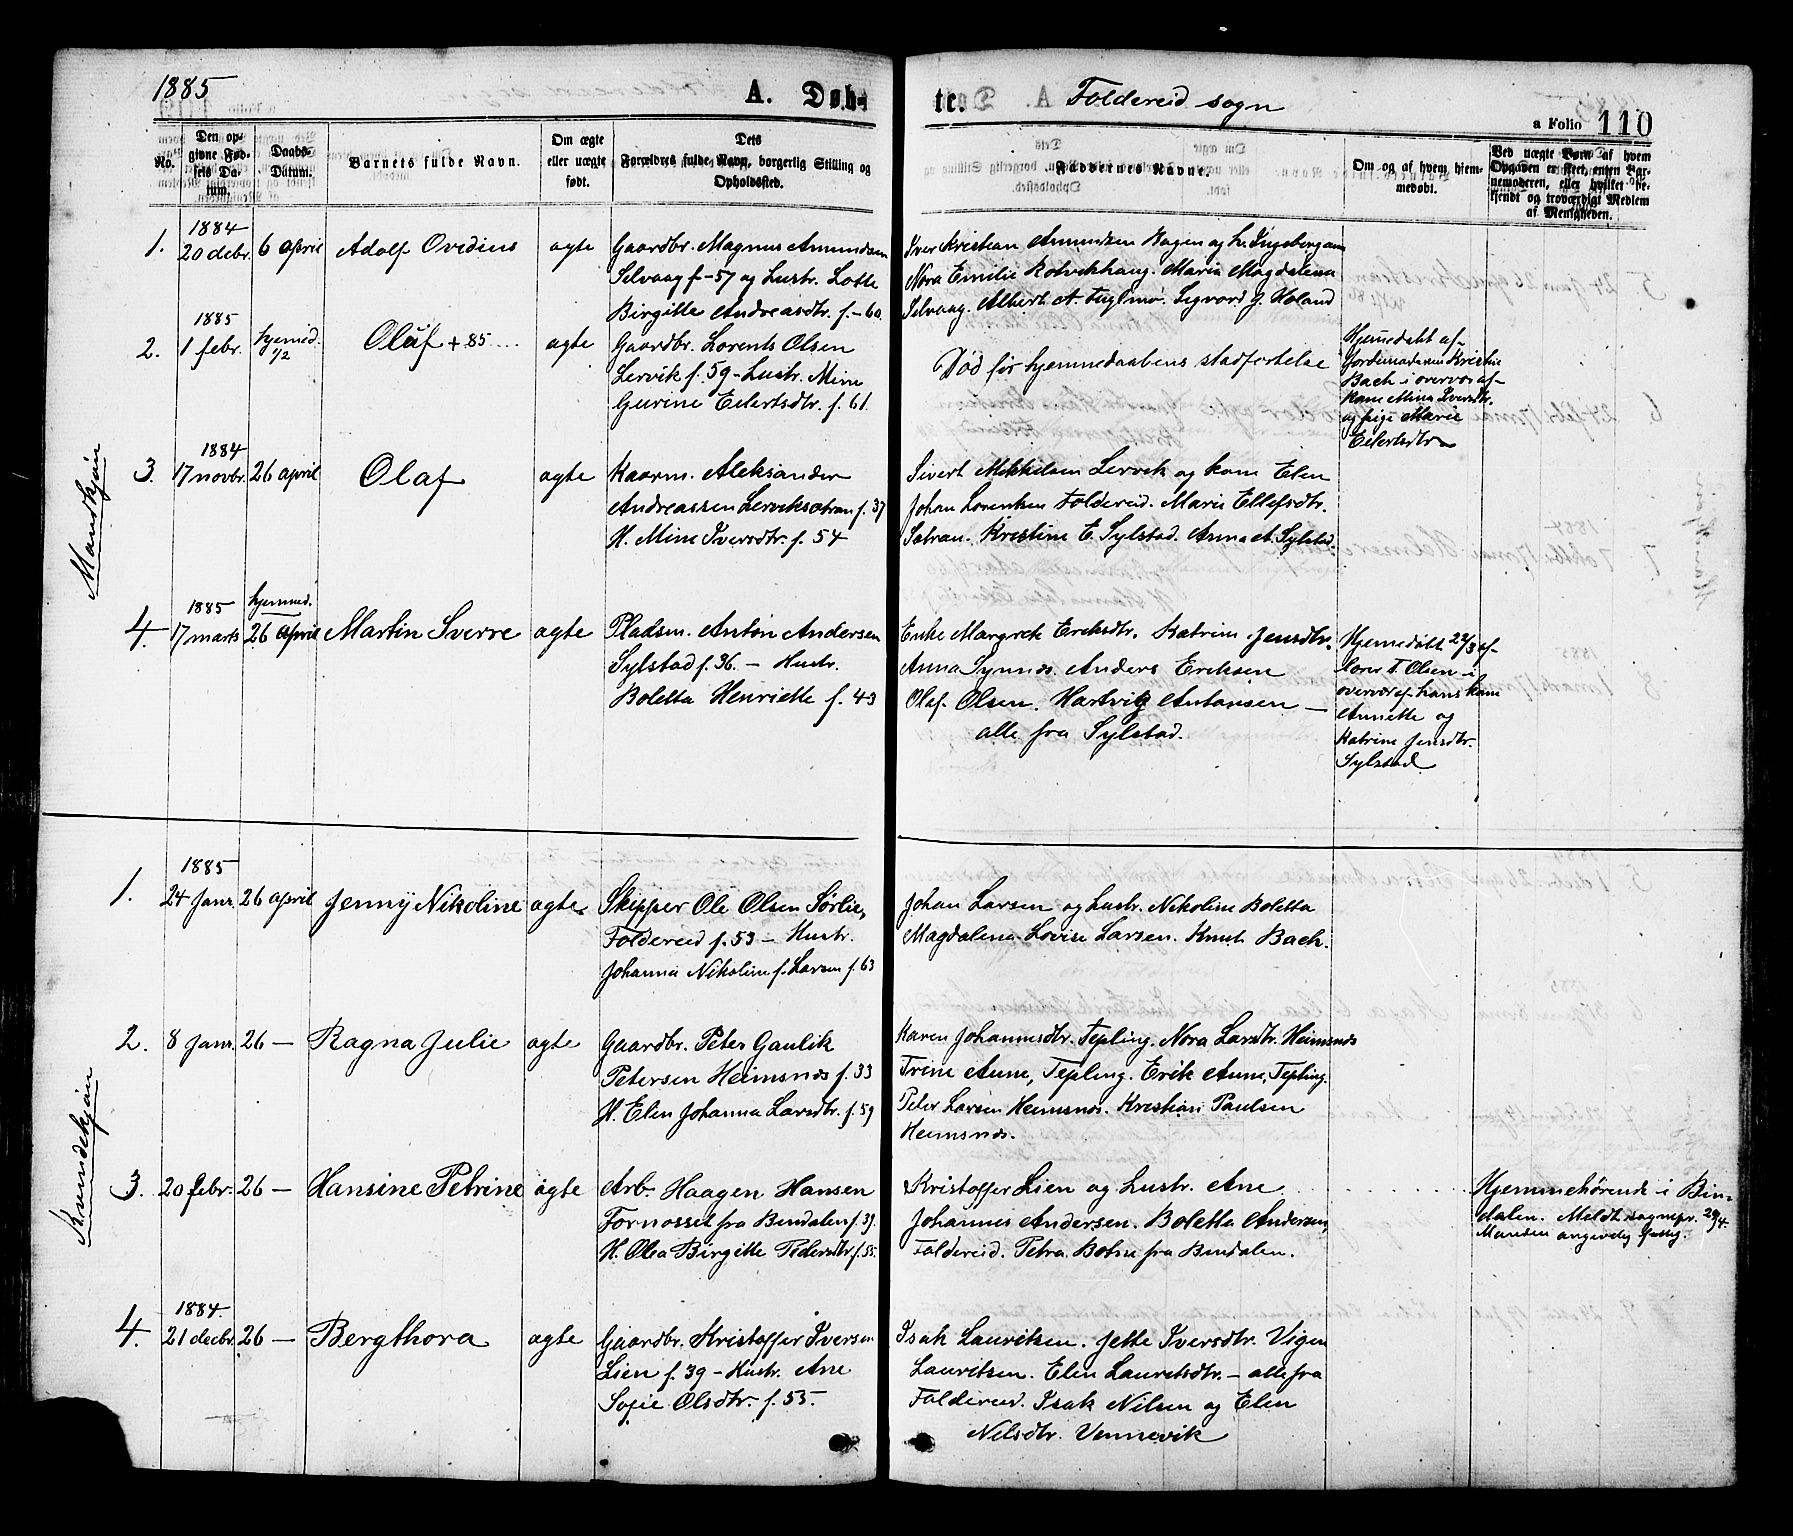 1885
A. Døb-
te.
Foldereid sogn
a Folio 110
No.
Den op-
givne Fød-
sels Da-
tum.
Daabs-
Datum.
Barnets fulde Navn.
Om ægte
eller uægte
født.
Dets
Forældres fulde Navn, borgerlig Stilling og
Opholdssted.
Faddernes Navne.
Om og af hvem hjem-
medøbt.
Ved uægte Børn af hvem
Opgaven er skeet, enten Bar-
nemoderen, eller hvilket be-
kjendt og troværdigt Medlem
af Menigheden.
Mandkjøn
1884
1. 20 debr. 6 april Adolf Ovidius ægte
Gaardbr. Magnus Amundsen
Selvaag f-57 og Hustr. Lotte
Birgitte Andreasdtr. f.-60
Iver Kristian Amundsen Hagen og h. Ingeborganna
Nora Emilie Kolvekhaug. Maria Magdalena
Selvaag. Albert A. Fuglmo. Sigvard J. Holand
1885
2. 1 febr. hjemed. 1/2 Oluf + 85 ... ægte
Gaardbr. Lorents Olsen
Lervik f. 59 - Hustr. Mine
Gurine Eilertsdtr. f. 61.
Død før hjemmedaabens stadfestelse
Hjemedøbt af
Jordmoderen Kristine
Bach i overvær af
kone Mina Iversdtr.
og pige Marie
Eilertsdtr
1884
3. 17 novbr. 26 april Olaf ægte
Kaarm. Aleksander
Andreassen Lerviksætran f. 37
H. Mine Iversdtr. f. 54
Sivert Mikkelsen Lervik og kone Elen
Johan Lorentsen Foldereid. Marie Ellefsdtr.
Sætran. Kristine E. Sylstad. Anna A. Sylstad.
1885 hjemmed.
4. 17 marts 26 April Martin Sverre ægte
Pladsm. Anton Andersen
Sylstad f. 36. - Hustr.
Boletta Henriette f. 43
Enke Margrete Eriksdtr. Katrine Jensdtr.
Anna Synnøs. Anders Eriksen
Olaf Olsen. Hartvig Antonsen -
alle fra Sylstad.
Hjemmedøbt 22/3 af
Lærer T. Olsen i
overvær af hans kone
Annette og
Katrine Jensdtr.
Sylstad
Kvindekjøn
1885
1. 24 Janr. 26 April Jenny Nikoline ægte
Skipper Ole Olsen Sørlie,
Foldereid f. 53 - Hustr.
Johanna Nikoline f. Larsen f. 63
Johan Larsen og Hustr. Nikoline Boletta
Magdalena Lovise Larsen. Knut Bach.
2. 8 Janr. 26 - Ragna Julie ægte
Gaardbr. Peter Gaulik
Petersen Heimsnæs f. 33
H. Elen Johanna Larsdtr. f. 59
Karen Johannesdtr. Tepling. Nora Larsdtr. Heimsnæs
Trine Aune, Tepling. Erik Aune, Tepling.
Peter Larsen Heimsnæs. Kristian Paulsen
Heimsnæs.
3. 20 febr. 26 - Hansine Petrine ægte
Arb. Haagen Hansen
Fornosset fra Bindalen f. 39.
H. Olea Birgitte Pedersdtr. f. 55.
Kristoffer Lien og Hustr. Ane
Johannes Andersen. Boletta Andersen,
Foldereid. Petra Bøhn fra Bindalen.
Hjemmehørende i Bin-
dalen. Meldt sognepr. 29/4.
Manden angivelig fattig.
1884.
4. 21 decbr. 26 - Bergthora ægte
Gaardbr. Kristoffer Iversen
Lien f. 39 - Hustr. Ane
Sofie Olsdtr. f. 55.
Isak Lauritsen. Jette Iversdtr. Vigen
Lauritsen. Elen Lauritsdtr. - alle fra
Foldereid. Isak Nilsen og Elen
Nilsdtr. Vennevik